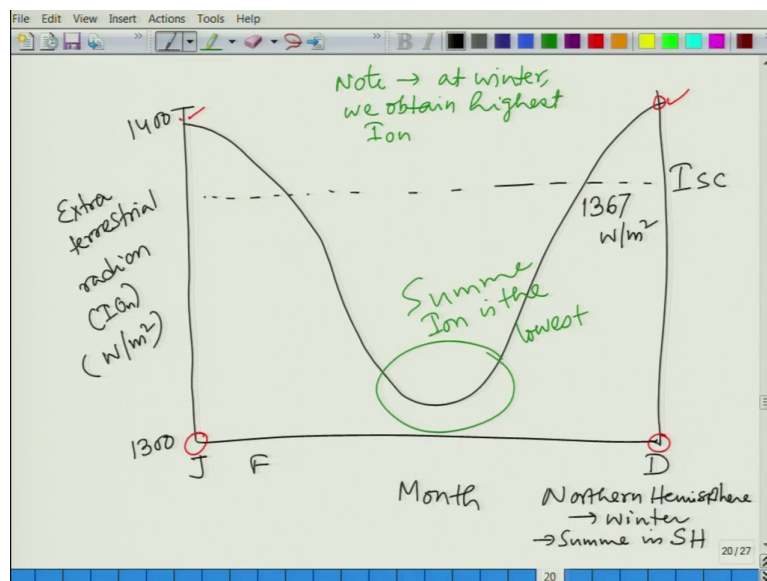 File Edit View Insert Actions Tools Help
B I
Note → at winter,
we obtain highest
Ion
1400
Isc
1367
W/m²
Extra
terrestrial
radion
(Ion)
(W/m²)
Summe
Ion is the
lowest
1300
J F D
Month
Northern Hemisphere
→ winter
→ Summe in SH
20/27
20